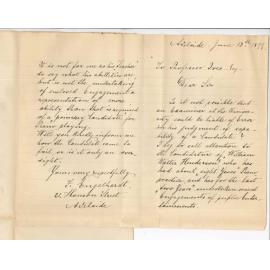 Adelaide June 13th 1899
To Professor Ives Esq
Dear Sir
Is it not possible that
an Examiner at the Univer-
sity could be liable of Error
in his judgment of capa-
bility of a Candidate?
I beg to call attention
to the Candidature of William
Walter Henderson who has
had about eight Years Piano
practice, and has for the last
two Years undertaken several
Engagements of public Enter-
tainments.
It is not for me as his Teacher
to say what his abilities are,
but is not the undertaking
of several Engagements a
representation of more
ability than that is required
of a primary Candidate for
Piano playing.
Will you kindly inform me
how the Candidate came to
fail or is it only an over
sight.
Yours very respectfully
F. Engelhardt
Hanson Street
Adelaide